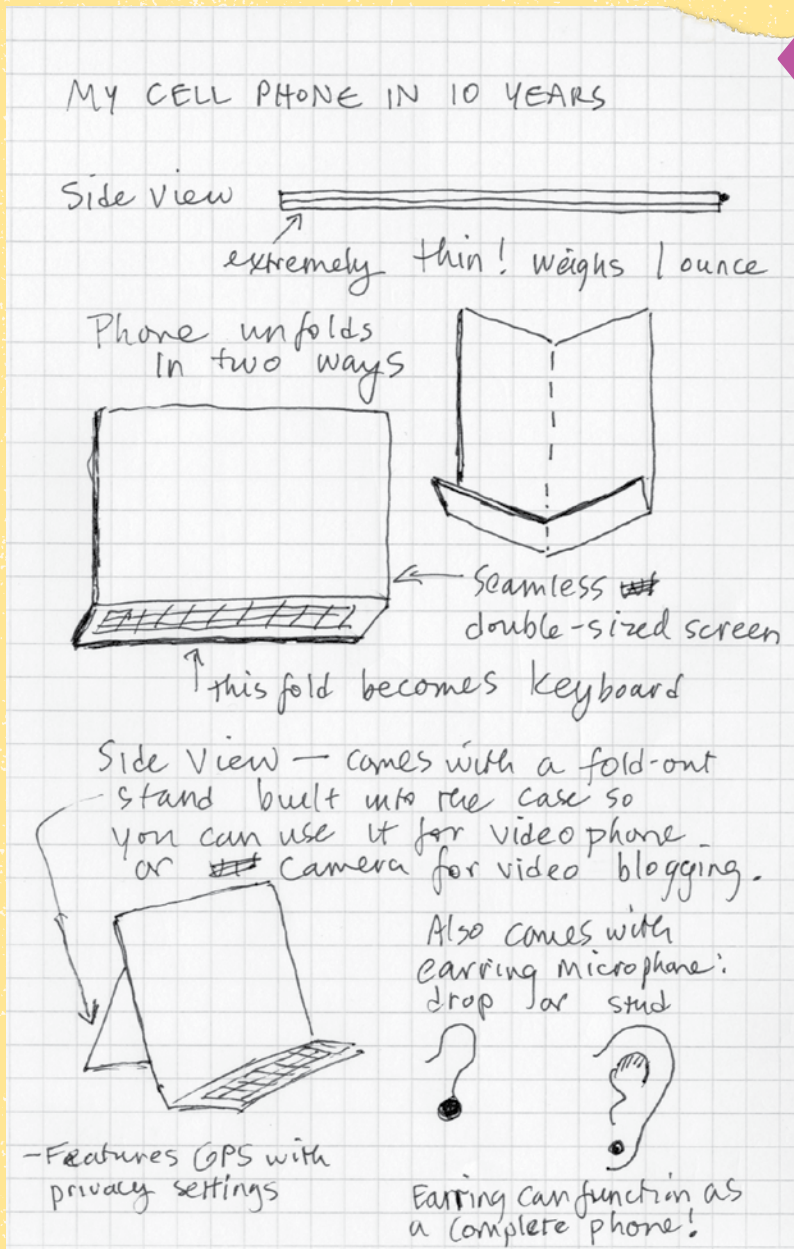 MY CELL PHONE IN 10 YEARS
Side View
extremely thin! weighs 1 ounce
Phone unfolds
in two ways
Seamless
double-sized screen
this fold becomes keyboard
Side View — comes with a fold-out
stand built into the case so
you can use it for videophone
or camera for video blogging.
Also comes with
earring microphone:
drop or stud
-Features GPS with
privacy settings
Earring can function as
a complete phone!